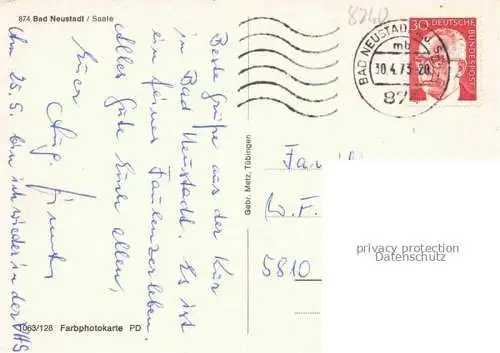 874 Bad Neustadt / Saale
8740
30 DEUTSCHE BUNDESPOST
BAD NEUSTADT
mb
30.4.73-20
874
Beste Grüße aus der Kur
in Bad Neustadt. Es ist
ein feines Faulenzerleben.
Alles Gute Euch allen,
Euer
Aug.
Am 25.5. bin ich wieder in der
Gebr. Metz, Tübingen
W. F.
5810
privacy protection
Datenschutz
1063/126 Farbphotokarte PD